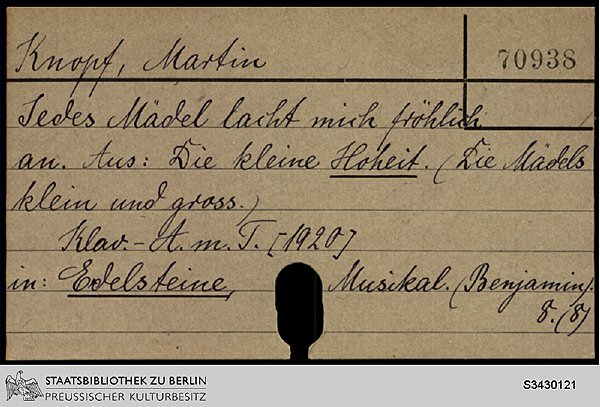 Knopf, Martin
70938
Jedes Mädel lacht mich fröhlich
an. Aus: Die kleine Hoheit. (Die Mädels
klein und gross.)
Klav.-A. m. T. [1920]
in: Edelsteine, Musikal. (Benjamin).
8. (8)
STAATSBIBLIOTHEK ZU BERLIN
PREUSSISCHER KULTURBESITZ
S3430121